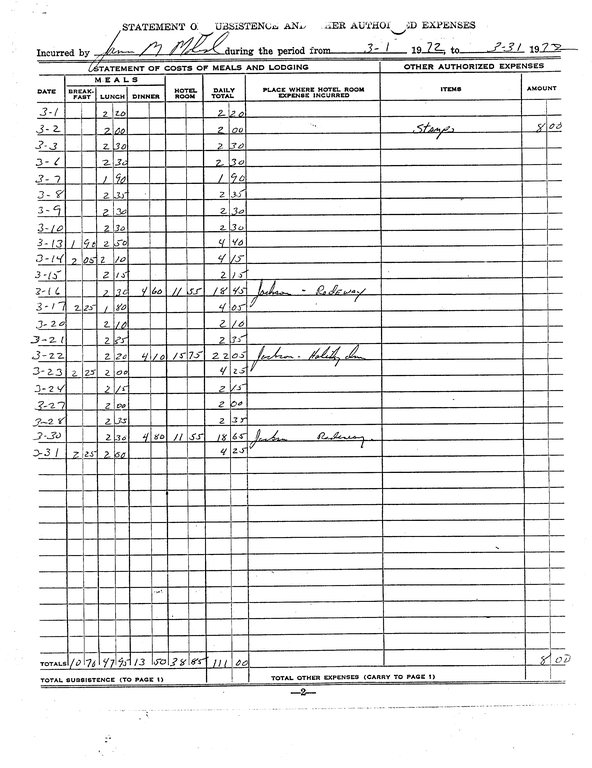 STATEMENT O UBSISTENCE AND HER AUTHOR ED EXPENSES
Incurred by M during the period from 3-1 1972, to 3-31 1972
STATEMENT OF COSTS OF MEALS AND LODGING OTHER AUTHORIZED EXPENSES
MEALS
DATE BREAK-FAST LUNCH DINNER HOTEL ROOM DAILY TOTAL PLACE WHERE HOTEL ROOM EXPENSE INCURRED ITEMS AMOUNT
3-1 2 20 2 20
3-2 2 00 2 00 Stamps 8 00
3-3 2 30 2 30
3-6 2 30 2 30
3-7 1 90 1 90
3-8 2 35 2 35
3-9 2 30 2 30
3-10 2 30 2 30
3-13 1 90 2 50 4 40
3-14 2 05 2 10 4 15
3-15 2 15 2 15
3-16 2 30 4 60 11 55 18 45 Jackson - Rodeway
3-17 2 25 1 80 4 05
3-20 2 10 2 10
3-21 2 35 2 35
3-22 2 20 4 10 15 75 22 05 Jackson - Holiday Inn
3-23 2 25 2 00 4 25
3-24 2 15 2 15
3-27 2 00 2 00
3-28 2 35 2 35
3-30 2 30 4 80 11 55 18 65 Jackson Rodeway
3-31 2 25 2 00 4 25
TOTALS 10 70 47 95 13 50 38 85 111 00 8 00
TOTAL SUBSISTENCE (TO PAGE 1) TOTAL OTHER EXPENSES (CARRY TO PAGE 1)
—2—